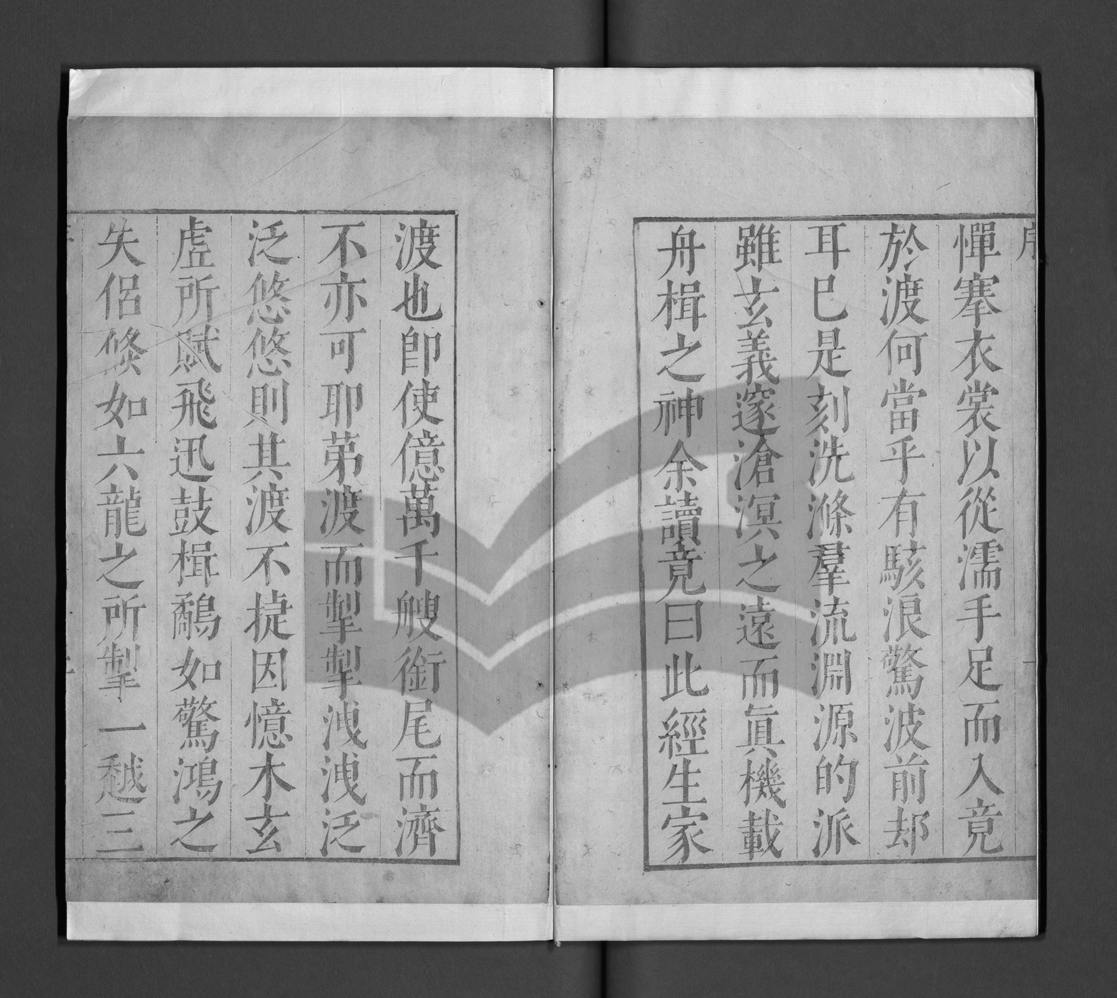 序
憚搴衣裳以從濡手足而入竟
於渡何當乎有駭浪驚波前却
耳巳是刻洗滌羣流淵源的派
雖玄義邃滄溟之遠而眞機載
舟楫之神余讀竟曰此經生家
渡也卽使億萬千艘銜尾而濟
不亦可耶苐渡而掣掣洩洩泛
泛悠悠則其渡不捷因憶木玄
虛所賦飛迅鼓楫鷸如驚鴻之
失侶倏如六龍之所掣一越三